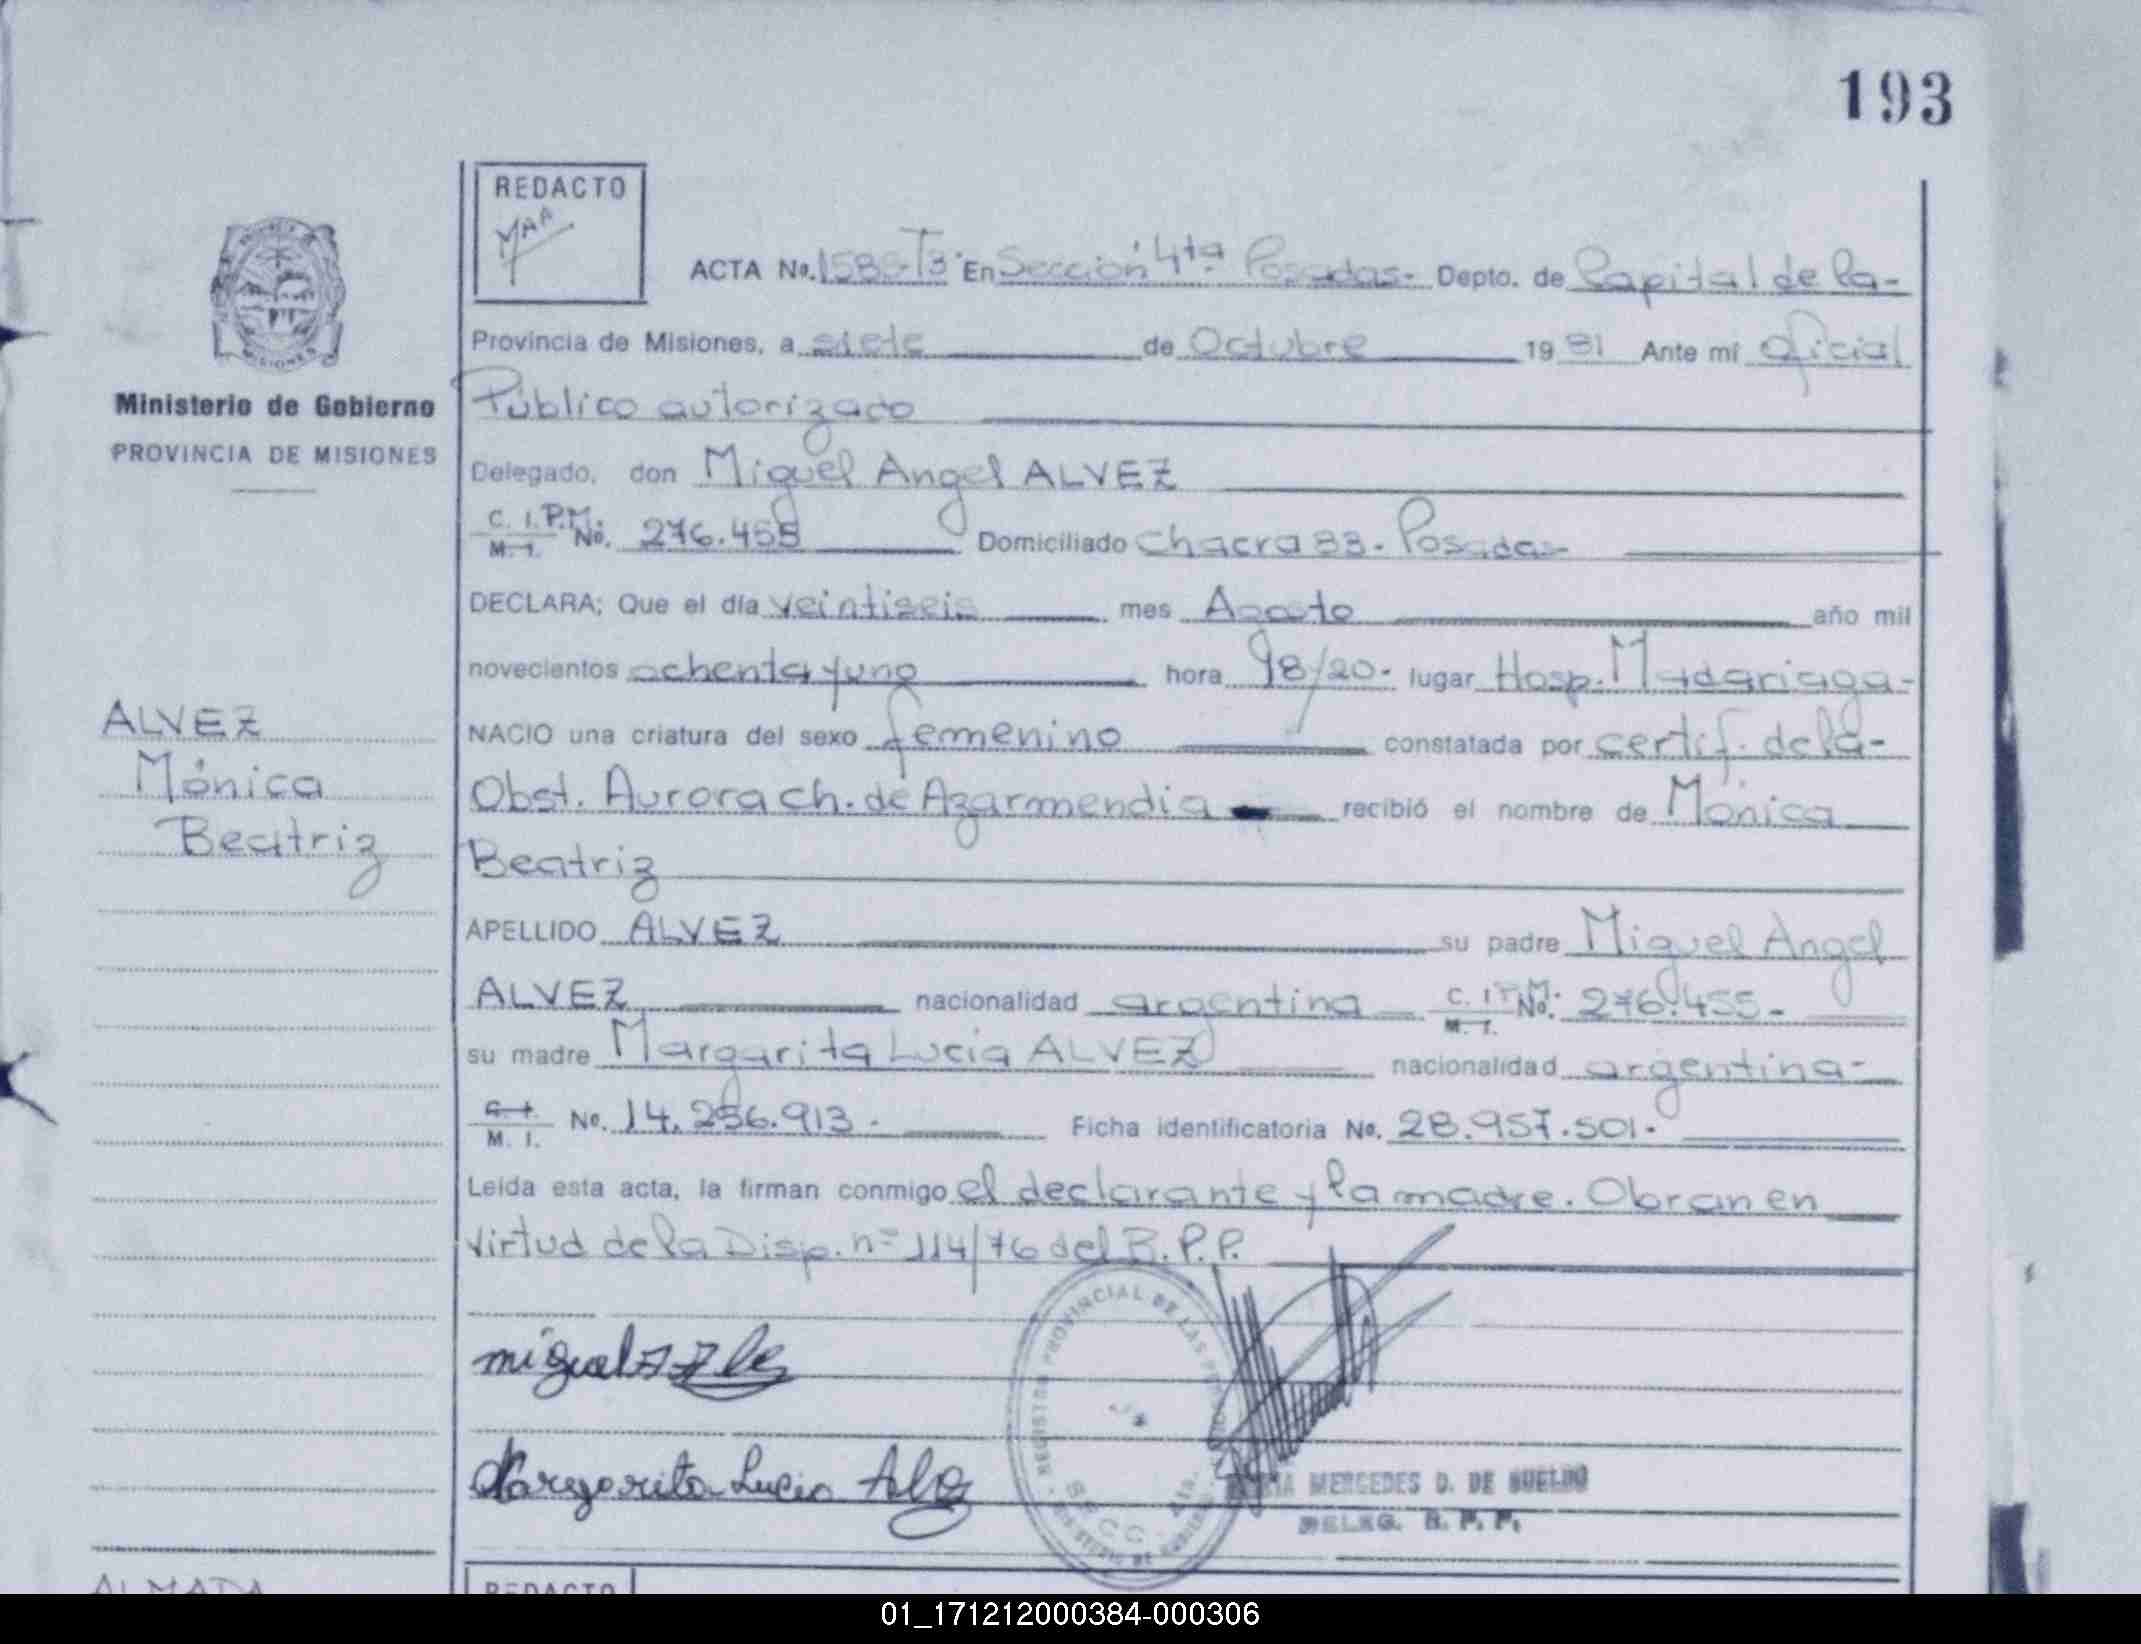 193
REDACTO
MAA
ACTA No. 1585-T3· En Sección 4ta Posadas- Depto. de Capital de la-
Provincia de Misiones, a siete de Octubre 1981 Ante mí Oficial
Público autorizado
Delegado, don Miguel Angel ALVEZ
C. I. P.M. No. 276.455 Domiciliado Chacra 33- Posadas-
M. I.
DECLARA; Que el día veintiseis mes Agosto año mil
novecientos ochenta y uno hora 98/20- lugar Hosp. Madariaga-
NACIO una criatura del sexo femenino constatada por certif. de la-
Obst. Aurora Ch. de Azarmendia recibió el nombre de Mónica
Beatriz
APELLIDO ALVEZ su padre Miguel Angel
ALVEZ nacionalidad argentina C. I. P.M. No. 276.455-
M. I.
su madre Margarita Lucia ALVEZ nacionalidad argentina-
C. I. No. 14.256.913- Ficha identificatoria No. 28.957.501-
M. I.
Leída esta acta, la firman conmigo el declarante y la madre. Obran en
virtud de la Disp. nº 114/76 del R.P.P.
MISIONES
Ministerio de Gobierno
PROVINCIA DE MISIONES
ALVEZ
Mónica
Beatriz
REGISTRO PROVINCIAL DE LAS
Margarita Lucia
MERCEDES D. DE SUELDO
DELEG. R. P. P.
ALMADA
REDACTO
01_171212000384-000306